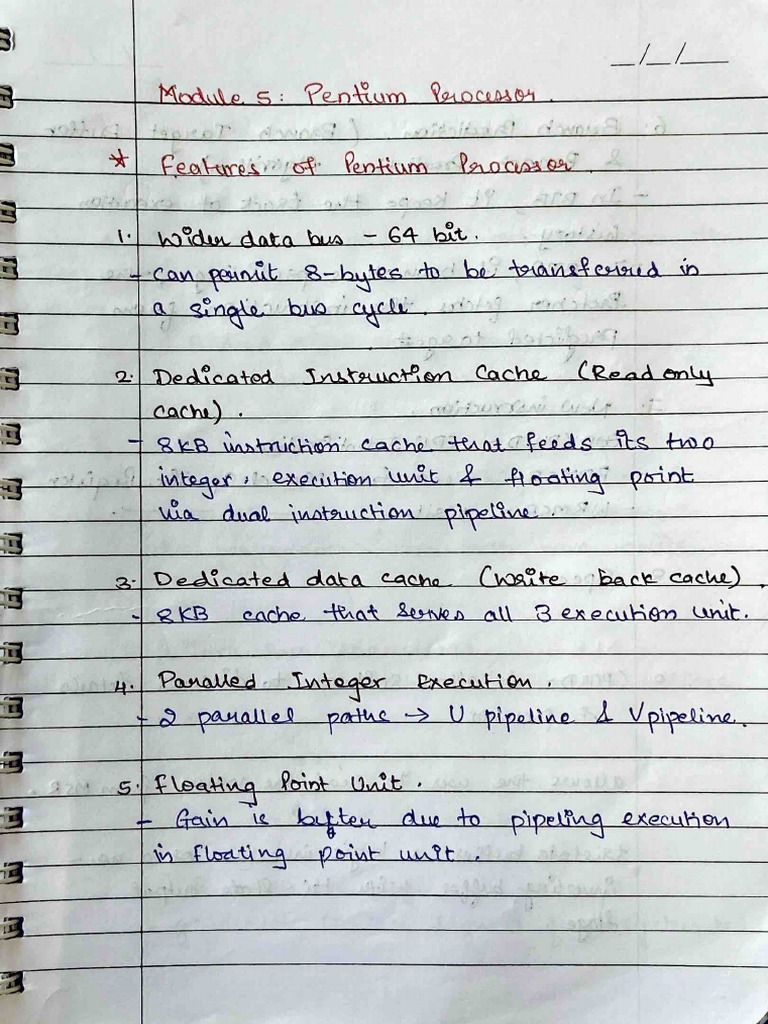 _/_/__
Module 5: Pentium Processor.
* Features of Pentium Processor.
1. Wider data bus - 64 bit.
- Can permit 8-bytes to be transferred in
a single bus cycle.
2. Dedicated Instruction Cache (Read only
cache).
- 8KB instriction cache that feeds its two
integer, execution unit & floating point
via dual instruction pipeline.
3. Dedicated data cache (write back cache).
- 8KB cache that serves all 3 execution unit.
4. Paralled Integer Execution.
- 2 parallel paths → U pipeline & V pipeline.
5. Floating Point Unit.
- Gain is due to pipeling execution
in floating point unit.